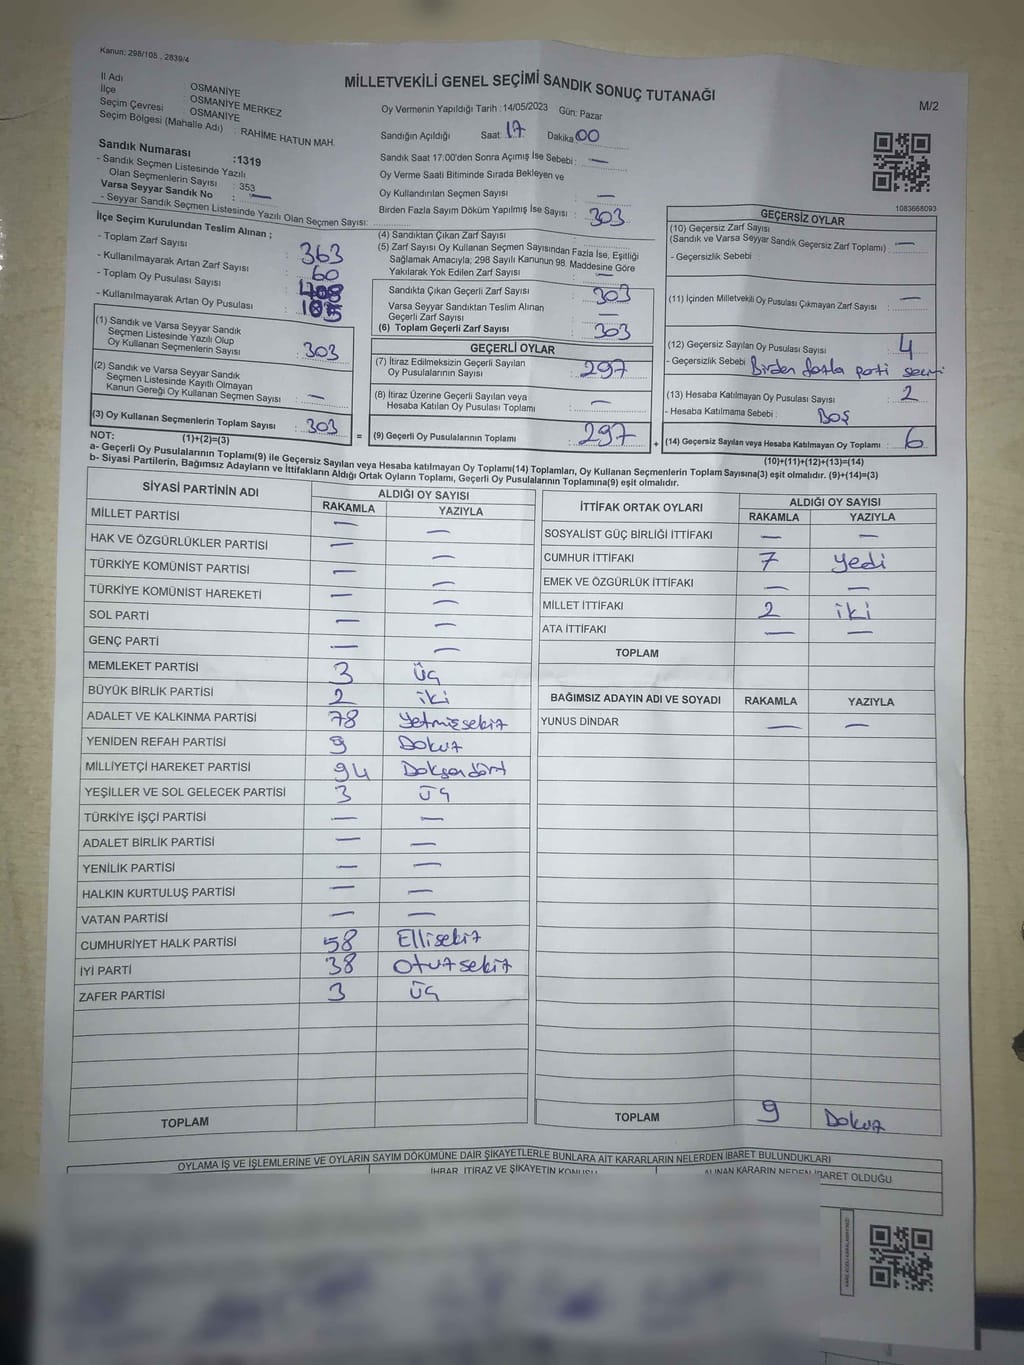 Kanun: 298/105 , 2839/4
MİLLETVEKİLİ GENEL SEÇİMİ SANDIK SONUÇ TUTANAĞI
M/2
İl Adı : OSMANİYE
İlçe : OSMANİYE MERKEZ
Seçim Çevresi : OSMANİYE
Seçim Bölgesi (Mahalle Adı) : RAHİME HATUN MAH.
Sandık Numarası :1319
- Sandık Seçmen Listesinde Yazılı
Olan Seçmenlerin Sayısı : 353
Varsa Seyyar Sandık No : —
- Seyyar Sandık Seçmen Listesinde Yazılı Olan Seçmen Sayısı:
Oy Vermenin Yapıldığı Tarih : 14/05/2023 Gün: Pazar
Sandığın Açıldığı Saat: 17 Dakika: 00
Sandık Saat 17:00'den Sonra Açımış İse Sebebi : —
Oy Verme Saati Bitiminde Sırada Bekleyen ve
Oy Kullandırılan Seçmen Sayısı —
Birden Fazla Sayım Döküm Yapılmış İse Sayısı :
1083668093
İlçe Seçim Kurulundan Teslim Alınan ;
- Toplam Zarf Sayısı : 363
- Kullanılmayarak Artan Zarf Sayısı : 60
- Toplam Oy Pusulası Sayısı :
- Kullanılmayarak Artan Oy Pusulası :
(1) Sandık ve Varsa Seyyar Sandık
Seçmen Listesinde Yazılı Olup
Oy Kullanan Seçmenlerin Sayısı : 303
(2) Sandık ve Varsa Seyyar Sandık
Seçmen Listesinde Kayıtlı Olmayan
Kanun Gereği Oy Kullanan Seçmen Sayısı : —
(3) Oy Kullanan Seçmenlerin Toplam Sayısı : 303
(1)+(2)=(3)
(4) Sandıktan Çıkan Zarf Sayısı : 303
(5) Zarf Sayısı Oy Kullanan Seçmen Sayısından Fazla İse, Eşitliği
Sağlamak Amacıyla; 298 Sayılı Kanunun 98. Maddesine Göre
Yakılarak Yok Edilen Zarf Sayısı : —
Sandıkta Çıkan Geçerli Zarf Sayısı : 303
Varsa Seyyar Sandıktan Teslim Alınan
Geçerli Zarf Sayısı : —
(6) Toplam Geçerli Zarf Sayısı : 303
GEÇERLİ OYLAR
(7) İtiraz Edilmeksizin Geçerli Sayılan
Oy Pusulalarının Sayısı : 297
(8) İtiraz Üzerine Geçerli Sayılan veya
Hesaba Katılan Oy Pusulası Toplamı : —
= (9) Geçerli Oy Pusulalarının Toplamı : 297
GEÇERSİZ OYLAR
(10) Geçersiz Zarf Sayısı
(Sandık ve Varsa Seyyar Sandık Geçersiz Zarf Toplamı) : —
- Geçersizlik Sebebi :
(11) İçinden Milletvekili Oy Pusulası Çıkmayan Zarf Sayısı : —
(12) Geçersiz Sayılan Oy Pusulası Sayısı : 4
- Geçersizlik Sebebi : Birden fazla parti seçmi
(13) Hesaba Katılmayan Oy Pusulası Sayısı : 2
- Hesaba Katılmama Sebebi : BOŞ
+ (14) Geçersiz Sayılan veya Hesaba Katılmayan Oy Toplamı : 6
(10)+(11)+(12)+(13)=(14)
NOT:
a- Geçerli Oy Pusulalarının Toplamı(9) ile Geçersiz Sayılan veya Hesaba katılmayan Oy Toplamı(14) Toplamları, Oy Kullanan Seçmenlerin Toplam Sayısına(3) eşit olmalıdır. (9)+(14)=(3)
b- Siyasi Partilerin, Bağımsız Adayların ve İttifakların Aldığı Ortak Oyların Toplamı, Geçerli Oy Pusulalarının Toplamına(9) eşit olmalıdır.
SİYASİ PARTİNİN ADI ALDIĞI OY SAYISI
RAKAMLA YAZIYLA
MİLLET PARTİSİ — —
HAK VE ÖZGÜRLÜKLER PARTİSİ — —
TÜRKİYE KOMÜNİST PARTİSİ — —
TÜRKİYE KOMÜNİST HAREKETİ — —
SOL PARTİ — —
GENÇ PARTİ — —
MEMLEKET PARTİSİ 3 Üç
BÜYÜK BİRLİK PARTİSİ 2 iki
ADALET VE KALKINMA PARTİSİ 78 Yetmişsekiz
YENİDEN REFAH PARTİSİ 9 Dokuz
MİLLİYETÇİ HAREKET PARTİSİ 94 Doksandört
YEŞİLLER VE SOL GELECEK PARTİSİ 3 Üç
TÜRKİYE İŞÇİ PARTİSİ — —
ADALET BİRLİK PARTİSİ — —
YENİLİK PARTİSİ — —
HALKIN KURTULUŞ PARTİSİ — —
VATAN PARTİSİ — —
CUMHURİYET HALK PARTİSİ 58 Ellisekiz
İYİ PARTİ 38 Otuzsekiz
ZAFER PARTİSİ 3 Üç
TOPLAM
İTTİFAK ORTAK OYLARI ALDIĞI OY SAYISI
RAKAMLA YAZIYLA
SOSYALİST GÜÇ BİRLİĞİ İTTİFAKI — —
CUMHUR İTTİFAKI 7 yedi
EMEK VE ÖZGÜRLÜK İTTİFAKI — —
MİLLET İTTİFAKI 2 iki
ATA İTTİFAKI — —
TOPLAM
BAĞIMSIZ ADAYIN ADI VE SOYADI RAKAMLA YAZIYLA
YUNUS DİNDAR — —
TOPLAM 9 Dokuz
OYLAMA İŞ VE İŞLEMLERİNE VE OYLARIN SAYIM DÖKÜMÜNE DAİR ŞİKAYETLERLE BUNLARA AİT KARARLARIN NELERDEN İBARET BULUNDUKLARI
İHBAR, İTİRAZ VE ŞİKAYETİN KONUSU
ALINAN KARARIN NEDEN İBARET OLDUĞU